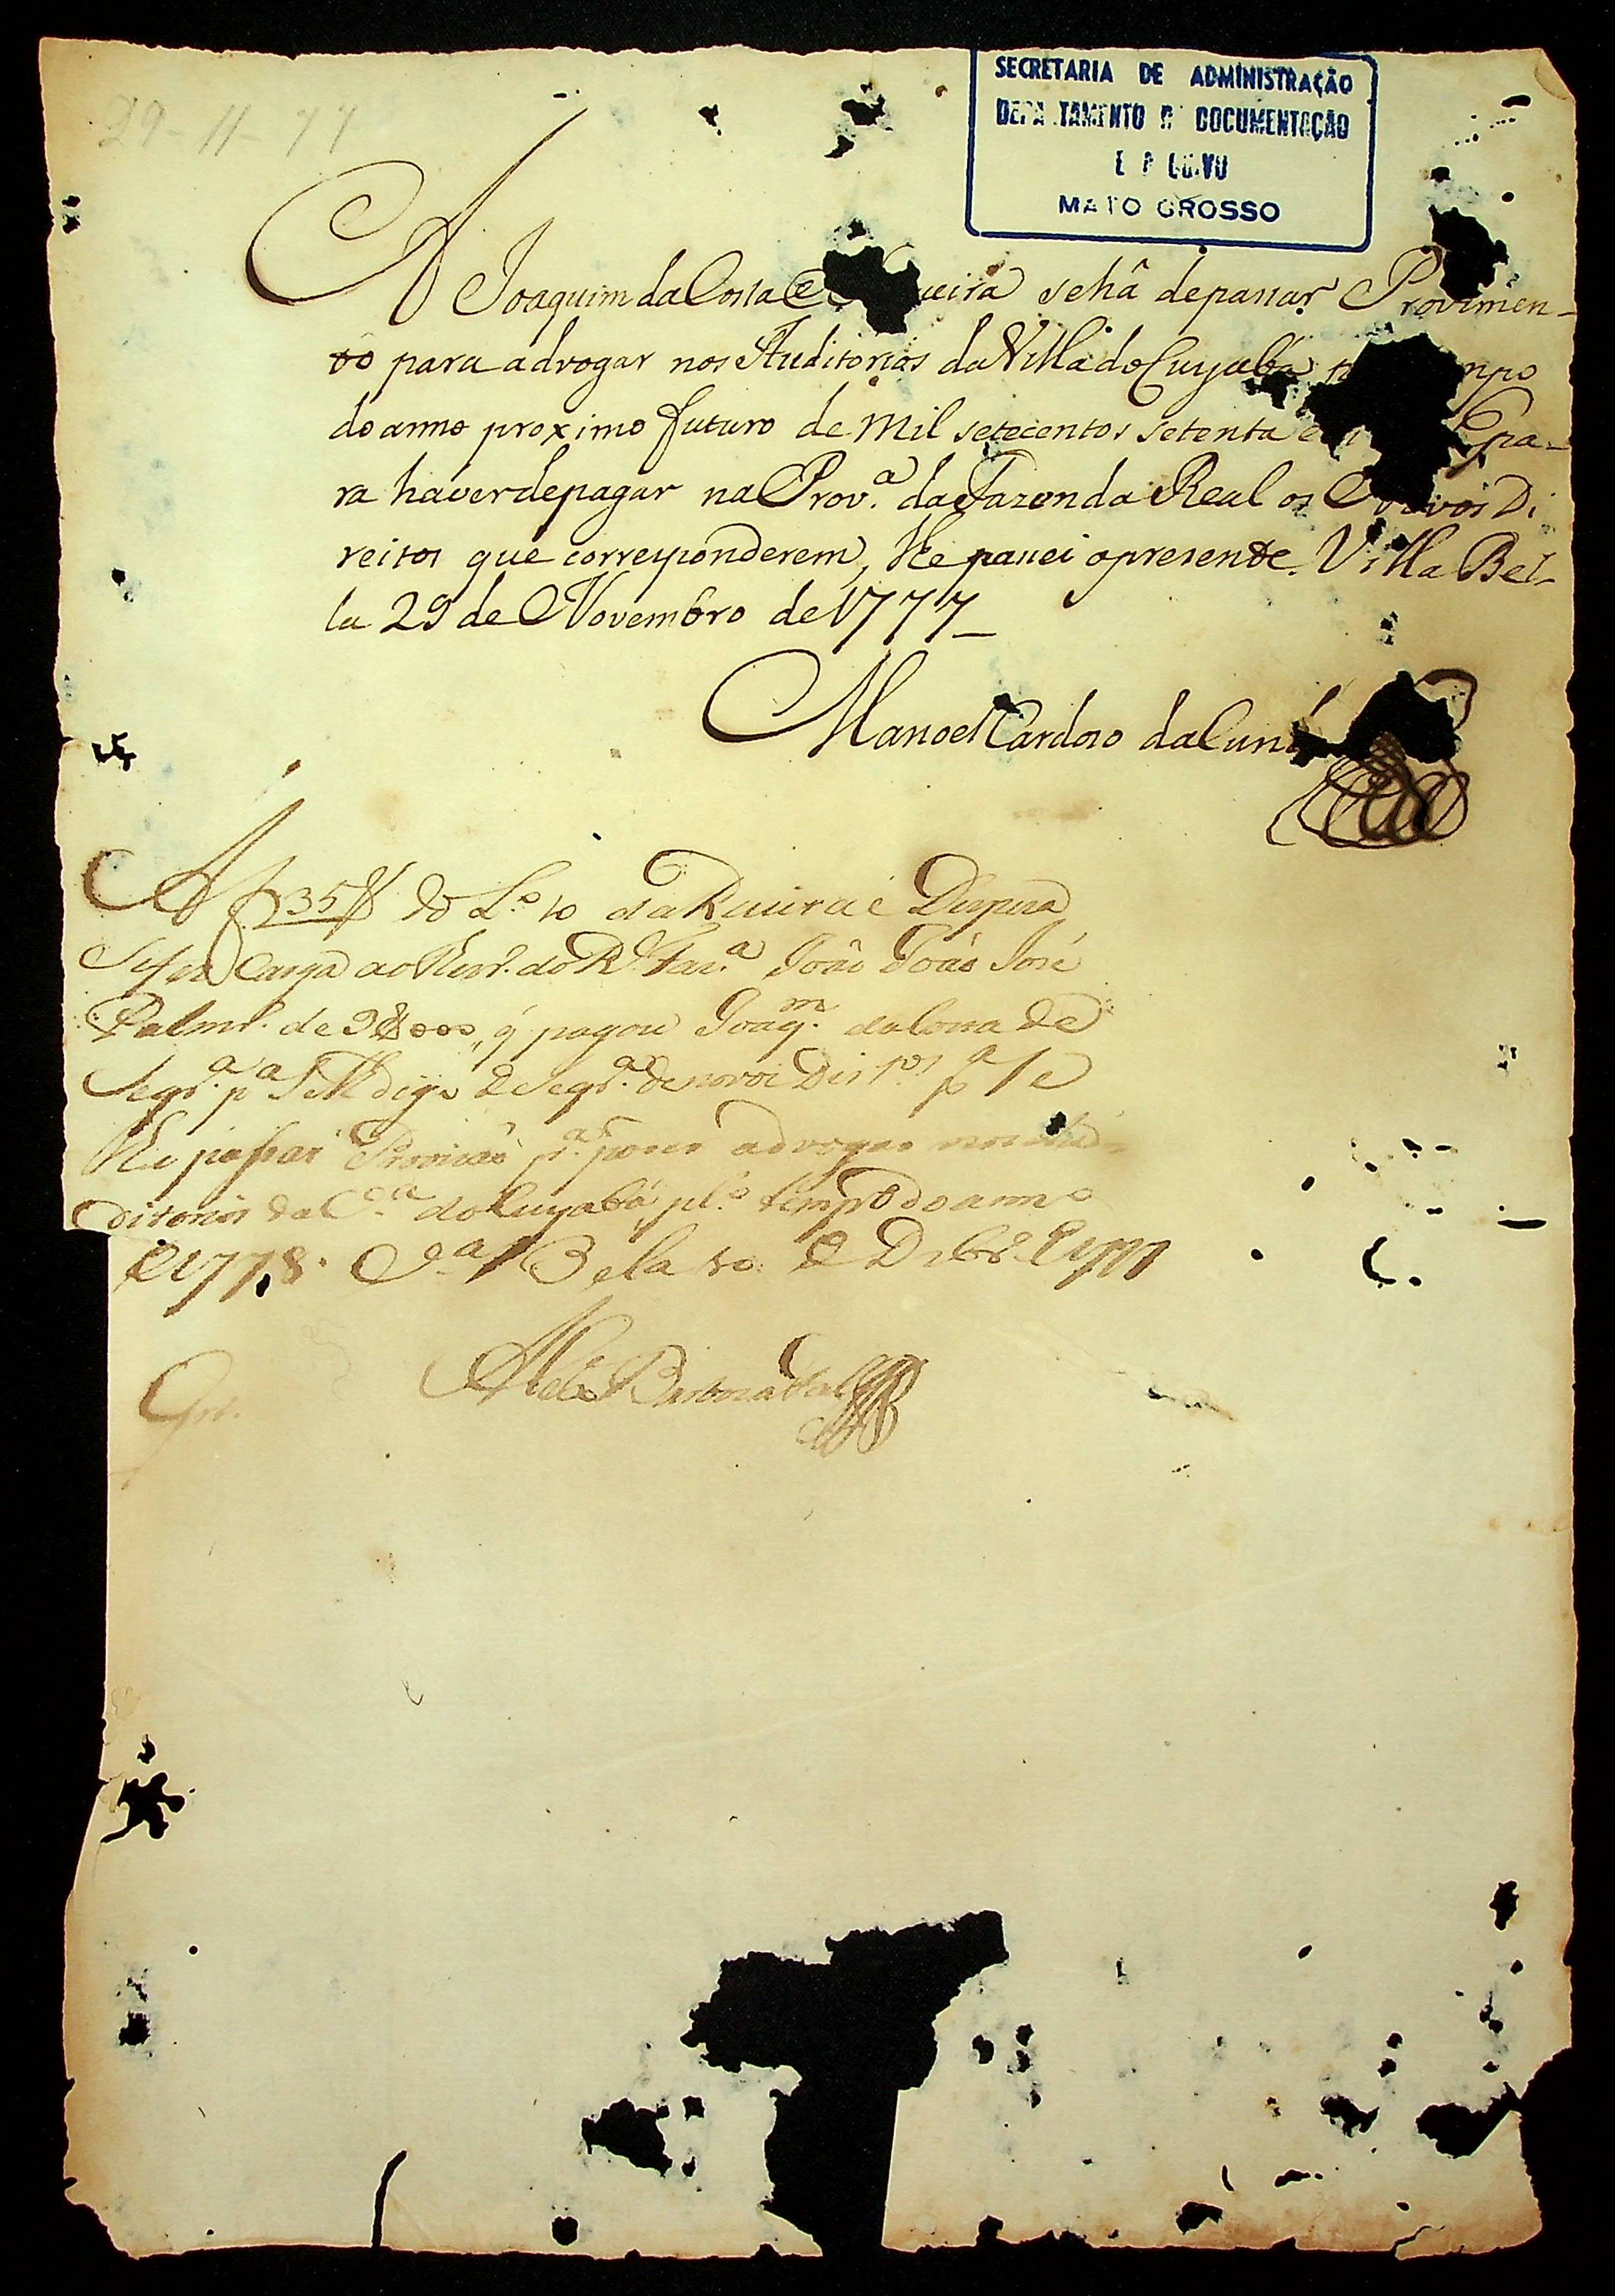 29-11-77
SECRETARIA DE ADMINISTRAÇÃO
DEPA TAMENTO D DOCUMENTAÇÃO
E
MATO GROSSO
A Joaquim da Costa e ueira se hâ de passar Provimen-
to para advogar nos Auditorios da Villa do Cuyaba mpo
do anno proximo futuro de mil setecentos setenta e Epa-
ra haver de pagar na Prov.ª da Fazenda Real os Novos Di
reitos que corresponderem, lhe passei o presente. Villa Bel-
la 29 de Novembro de 1777_
Manoel Cardoso da Cunh
A f 35 do L.º 10 da Receita e Despeza
Carga ao do R. Faz.ª João José
de 9$000, q̃ pagou Joaq.m da Costa de
Seqr.ª p.ª digo de Seqr.ª de novos Dir.tos p.ª se
lhe passar Provizão p.ª poder advogar nos Au-
ditorios da V.ª do Cuyabá pl.º tempo do anno
de 1778. V.ª Bela 10 de Dezbr.º de 1777